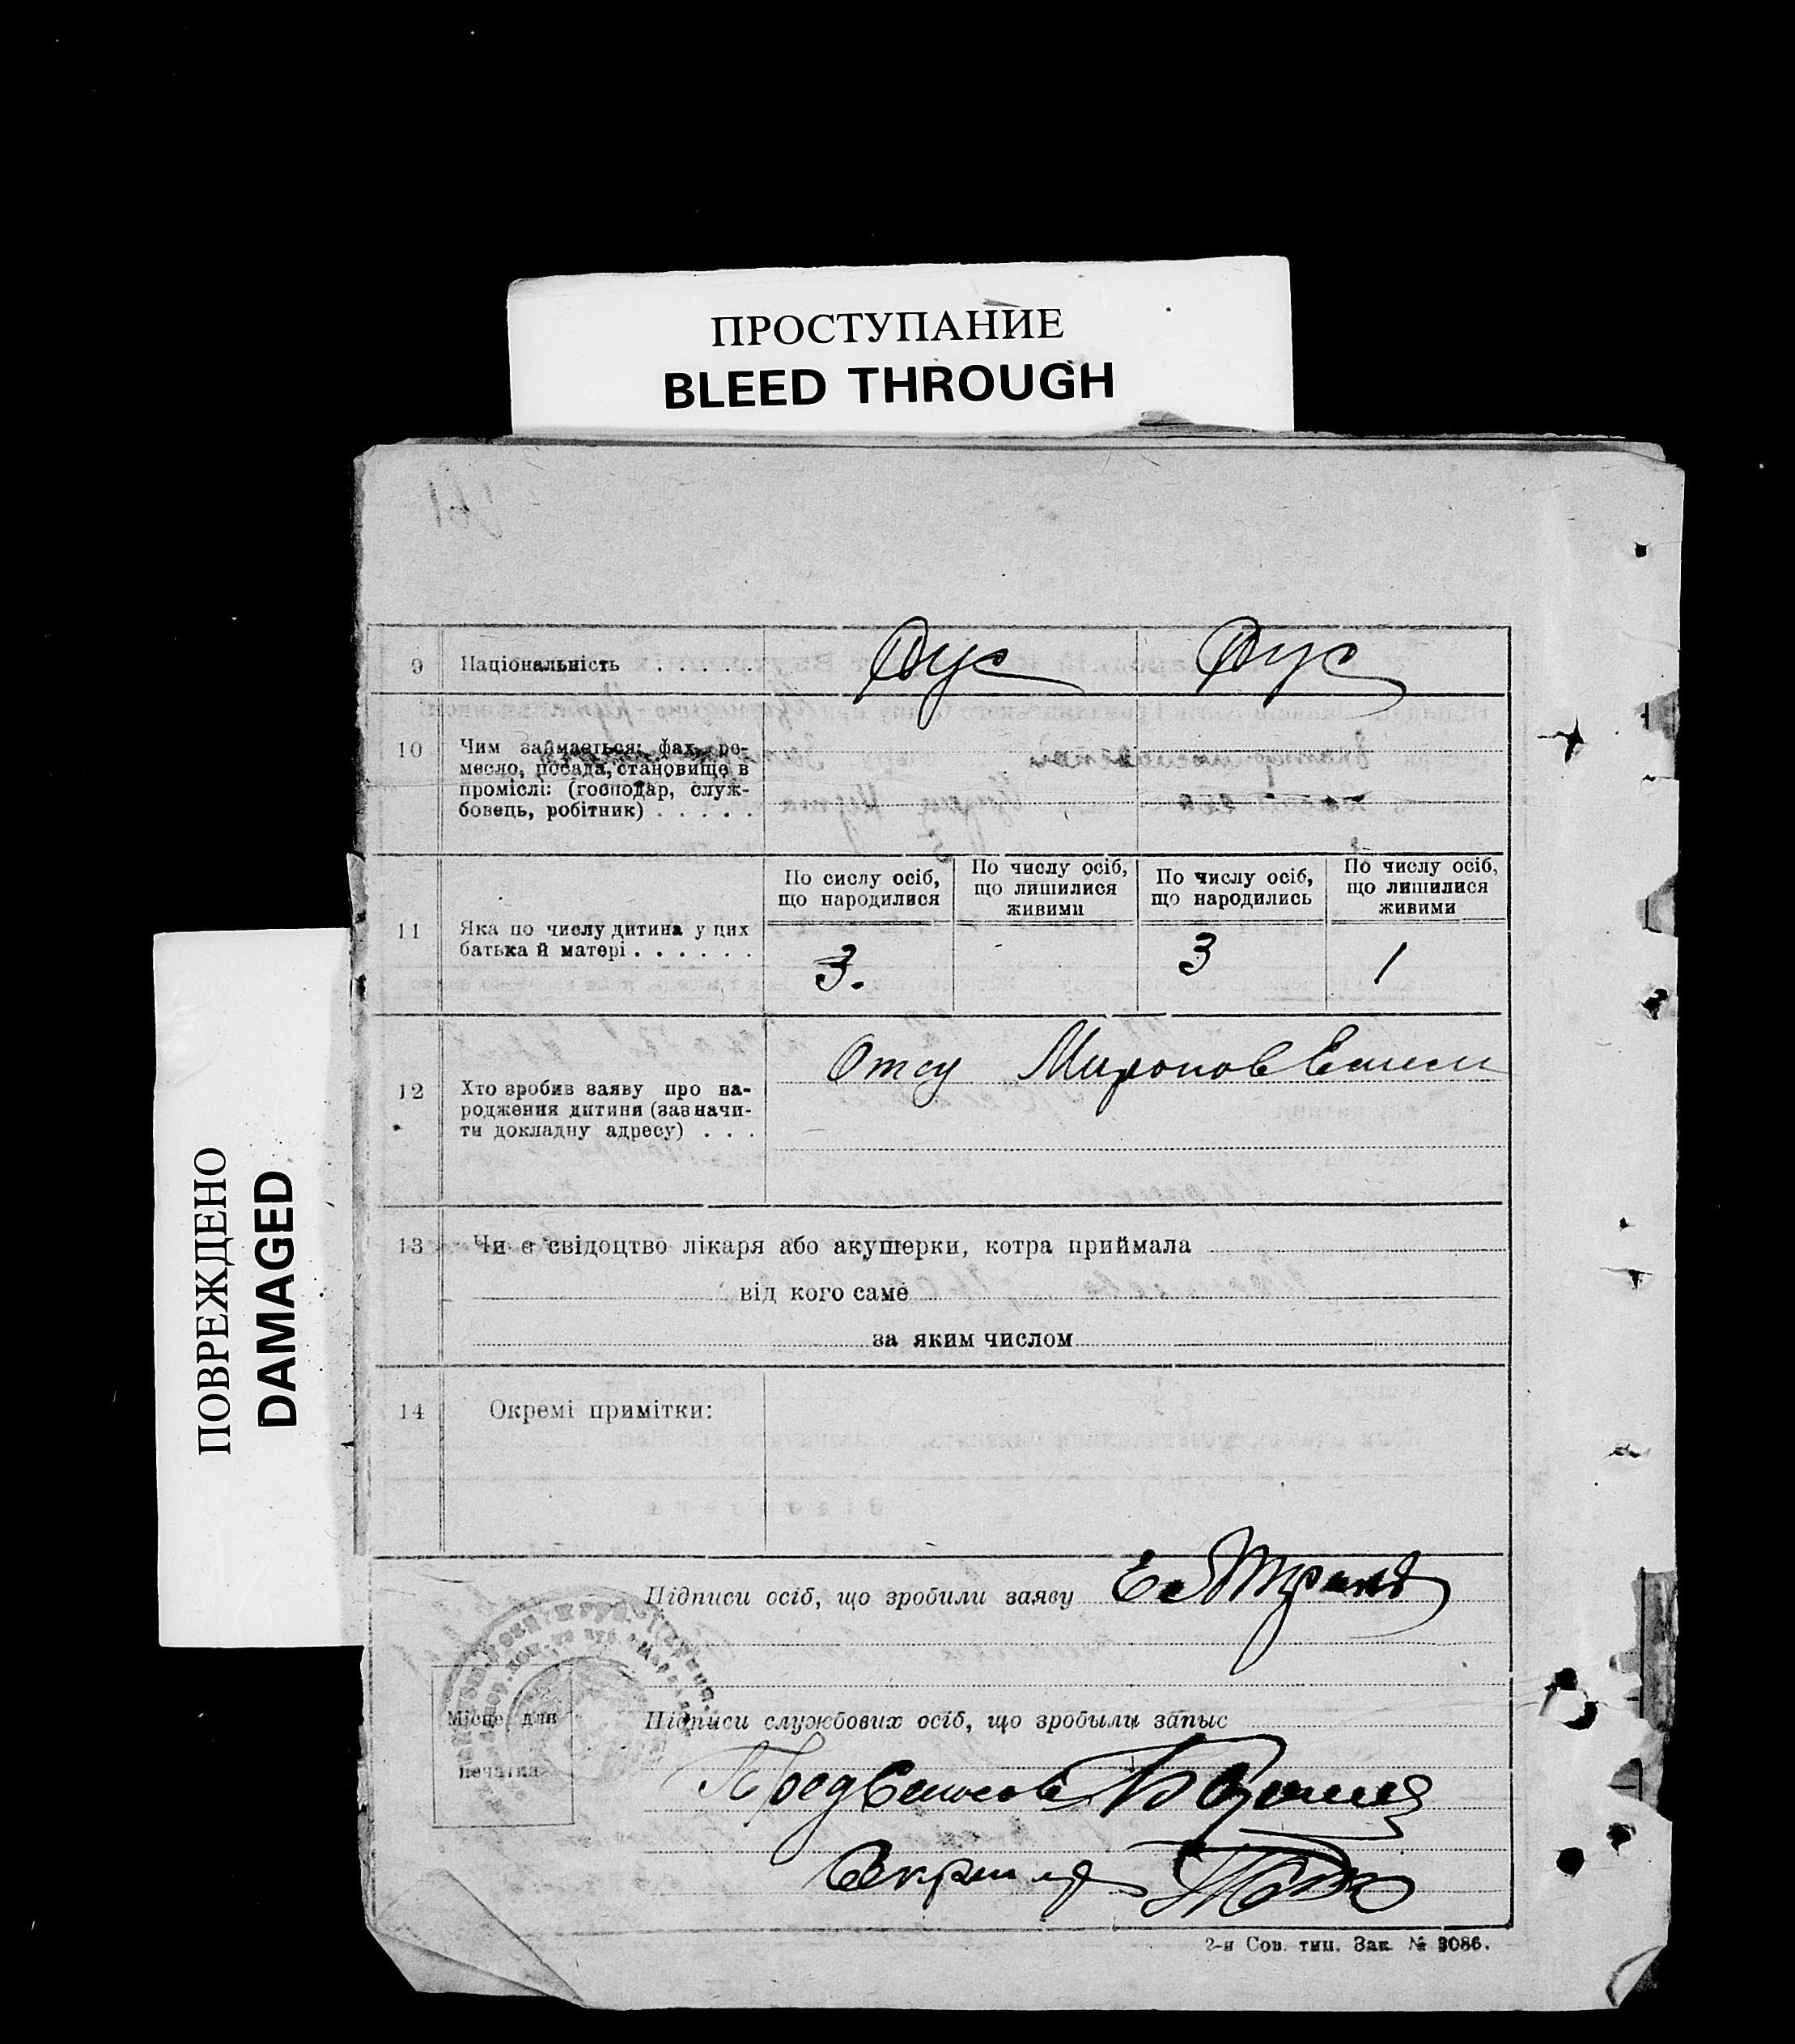 ПРОСТУПАНИЕ
BLEED THROUGH
ПОВРЕЖДЕНО
DAMAGED
9 Національність . . . . . Рус Рус
10 Чим займається: фах, ре-
месло, посада, становище в
проміслі: (господар, служ-
бовець, робітник) . . . . .
По сислу осіб,
що народилися
По числу осіб,
що лишилися
живими
По числу осіб,
що народились
По числу осіб,
що лишилися
живими
11 Яка по числу дитина у цих
батька й матері . . . . . .
3. 3 1
12 Хто зробив заяву про на-
родження дитини (зазначи-
ти докладну адресу) . . .
Отец Миронов
13 Чи є свідоцтво лікаря або акушерки, котра приймала
від кого саме
за яким числом
14 Окремі примітки:
Підписи осіб, що зробили заяву
Місце для
печатки
Підписи службових осіб, що зробылы запыс
Пред
Секретар
2-я Сов. тип. Зак. № 3086.